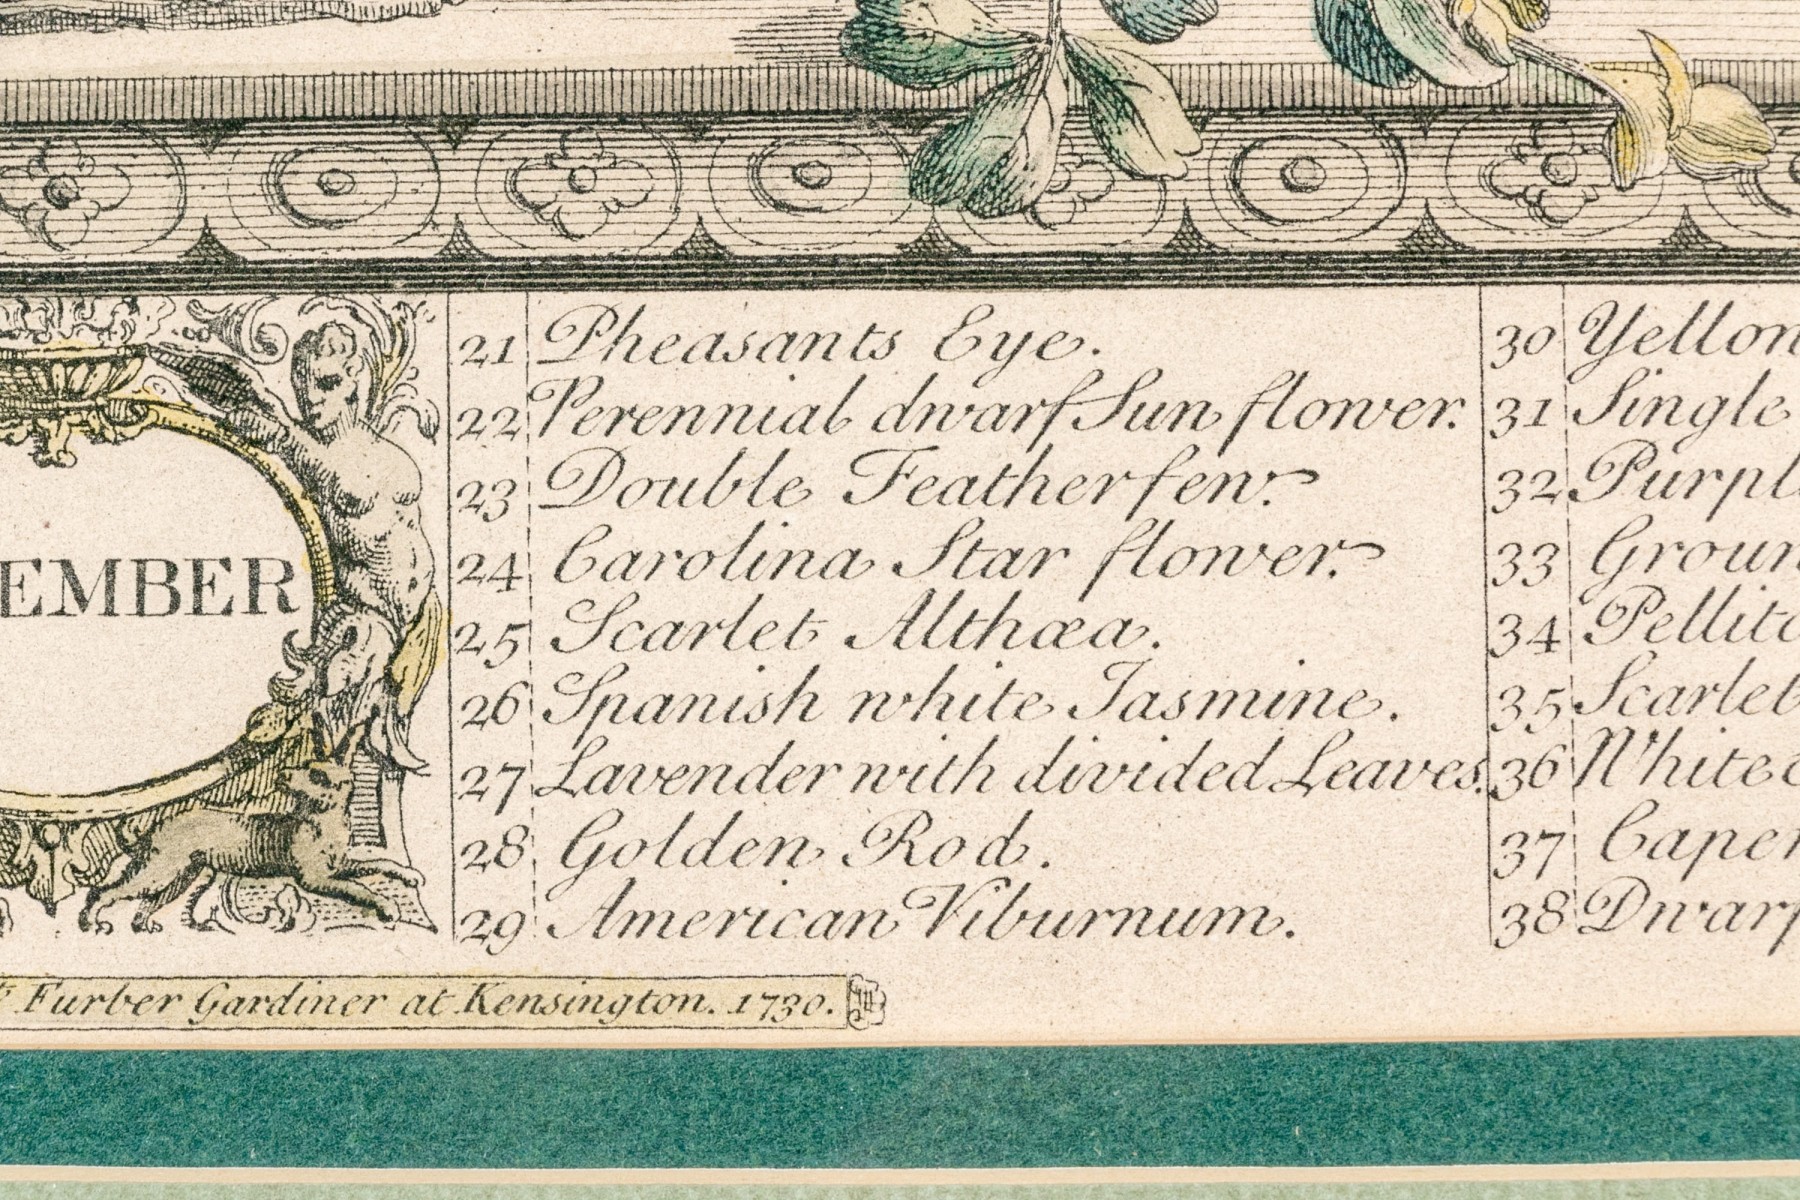 EMBER
21 Pheasants Eye.
22 Perennial dwarf Sun flower.
23 Double Featherfew.
24 Carolina Star flower.
25 Scarlet Althæa.
26 Spanish white Jasmine.
27 Lavender with divided Leaves.
28 Golden Rod.
29 American Viburnum.
30 Yellow
31 Single
32 Purpl
33 Groun
34 Pellito
35 Scarlet
36 White
37 Caper
38 Dwarf
Furber Gardiner at Kensington. 1730.